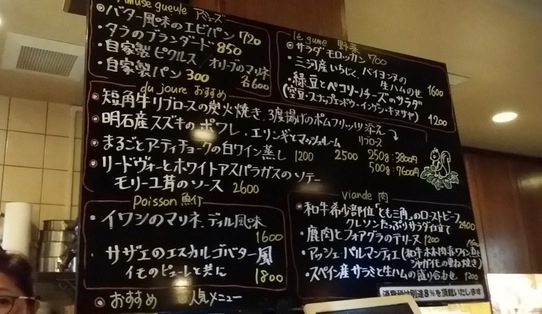 Amuse gueule アミューズ
バター風味のエビパン 720
タラのブランダード 850
自家製ピクルス オリーブのマリネ
自家製パン 300 各600
légume 野菜
サラダ モロッカン 700
三河産いちじく、バイヨンヌの
生ハムのせ 1600
緑豆とペコリーノチーズのサラダ
(空豆・スナップエンドウ・インゲン・キヌサヤ) 1200
du joure おすすめ
短角牛リブロースの炭火焼き 3度揚げのポムフリッツ添え
明石産スズキのポワレ、エリンギとマッシュルーム リブロース
まるごとアーティチョークの白ワイン蒸し 1200 2500 250g 3800円
500g 7600円
リードヴォーとホワイトアスパラガスのソテー
モリーユ茸のソース 2600
Poisson 魚介
イワシのマリネ、ディル風味
1600
サザエのエスカルゴバター風
イモのピューレと共に 1800
おすすめ 人気メニュー
Viande 肉
和牛希少部位"とも三角"のローストビーフ
クレソンたっぷりサラダ仕立て 2400
鹿肉とフォアグラのテリーヌ 1200
アッシェ・パルマンティエ
スペイン産サラミと生ハムの盛り合わせ 1200
消費税は別途8%を頂戴いたします